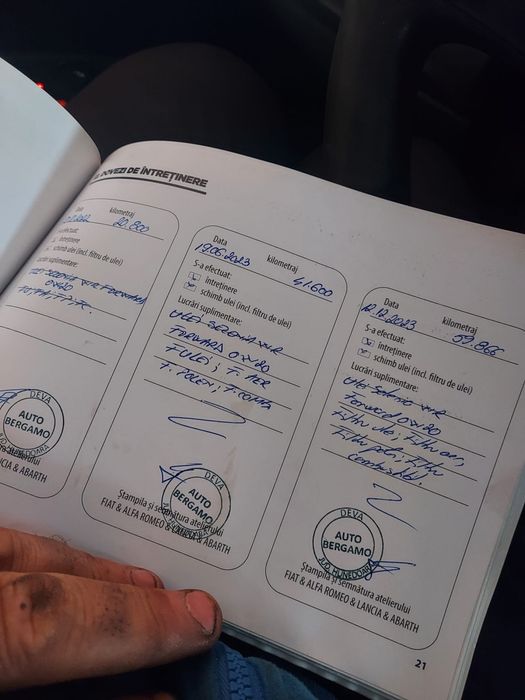 DOVEZI DE ÎNTREȚINERE
kilometraj
2022 20.800
S-a efectuat:
întreținere
schimb ulei (incl. filtru de ulei)
Lucrări suplimentare:
0W20
DEVA
AUTO
BERGAMO
JUD. HUNEDOARA
Ștampila și semnătura atelierului
LANCIA & ABARTH
Data kilometraj
19.06.2023 41.600
S-a efectuat:
întreținere
schimb ulei (incl. filtru de ulei)
Lucrări suplimentare:
ULEI SELENIA WR
FORWARD 0W20
F ULEI; F. AER
F. POLEN; F. COMB
DEVA
AUTO
BERGAMO
Ștampila și semnătura atelierului
FIAT & ALFA ROMEO & LANCIA & ABARTH
Data kilometraj
12.12.2023 59.866
S-a efectuat:
întreținere
schimb ulei (incl. filtru de ulei)
Lucrări suplimentare:
Ulei Selenia WR
Forward 0W20
Filtru ulei; Filtru aer,
Filtru polen; Filtru
combustibil.
DEVA
AUTO
BERGAMO
JUD. HUNEDOARA
Ștampila și semnătura atelierului
FIAT & ALFA ROMEO & LANCIA & ABARTH
21